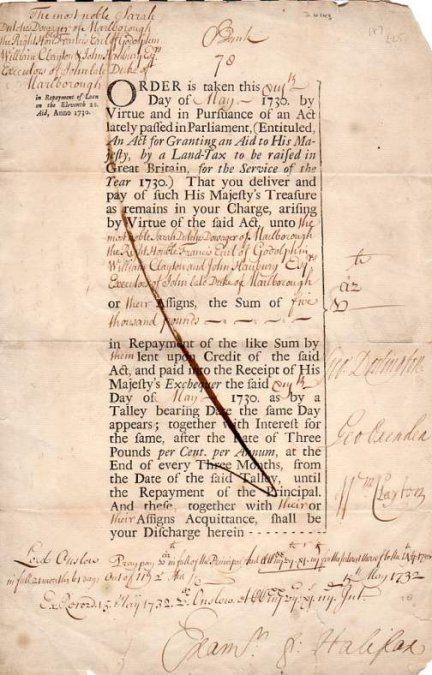 The most noble Sarah
Dutchess Dowager of Marlborough
the Right Honble Francis Earl of Godolphin
William Clayton & John Hanbury Esqrs
Executors of John late Duke of
Marlborough
in Repayment of Loan
on the Eleventh 2s.
Aid, Anno 1730.
78
ORDER is taken this
Day of May 1730. by
Virtue and in Pursuance of an Act
lately passed in Parliament, (Entituled,
An Act for Granting an Aid to His Ma-
jesty, by a Land-Tax to be raised in
Great Britain, for the Service of the
Year 1730.) That you deliver and
pay of such His Majesty's Treasure
as remains in your Charge, arising
by Virtue of the said Act, unto the
most noble Sarah Dutchess Dowager of Marlborough
the Right Honble Francis Earl of Godolphin
William Clayton and John Hanbury Esqrs
Executors of John late Duke of Marlborough
or their Assigns, the Sum of five
thousand pounds
in Repayment of the like Sum by
them lent upon Credit of the said
Act, and paid into the Receipt of His
Majesty's Exchequer the said
Day of May 1730. as by a
Talley bearing Date the same Day
appears; together with Interest for
the same, after the Rate of Three
Pounds per Cent. per Annum, at the
End of every Three Months, from
the Date of the said Talley, until
the Repayment of the Principal.
And these, together with their or
their Assigns Acquittance, shall be
your Discharge herein
Geo Dodington
Geo Oxenden
Wm Clayton
Lord Onslow Pray pay in full of the Principal and
in full 21 months & days May 1732
Ex Record 15 May 1732 Onslow
Exam Halifax